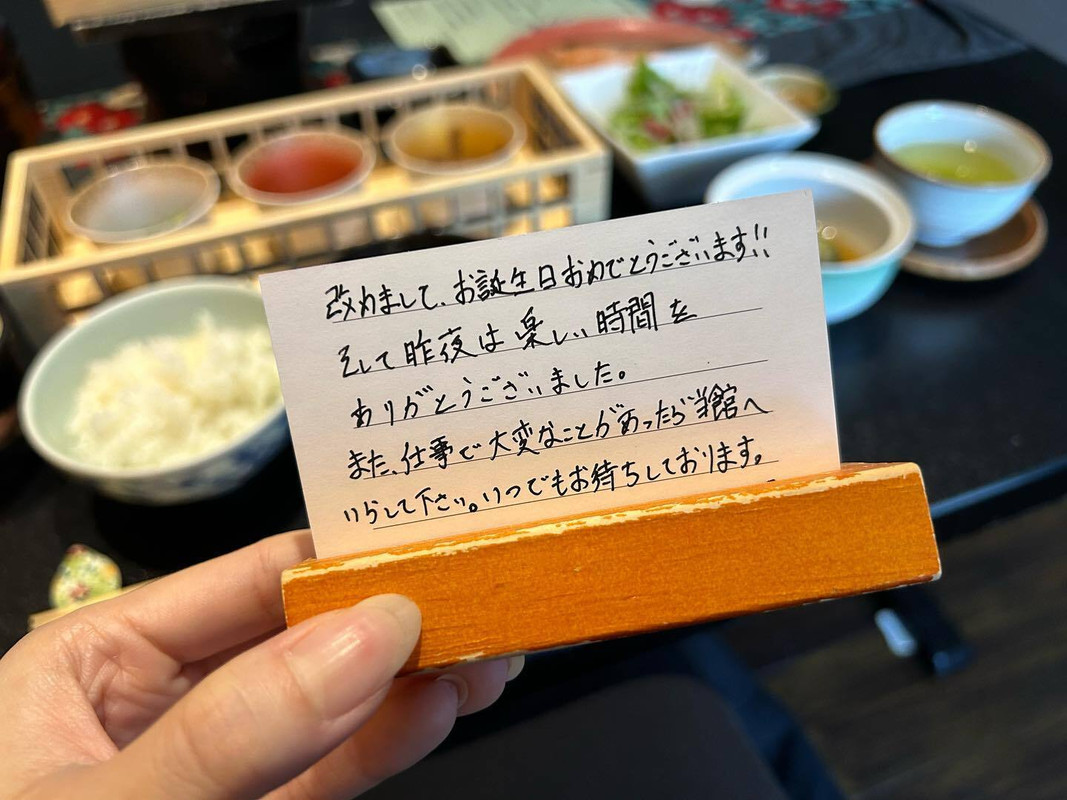 改めまして、お誕生日おめでとうございます!!
そして昨夜は楽しい時間を
ありがとうございました。
また、仕事で大変なことがあったら当館へ
いらして下さい。いつでもお待ちしております。